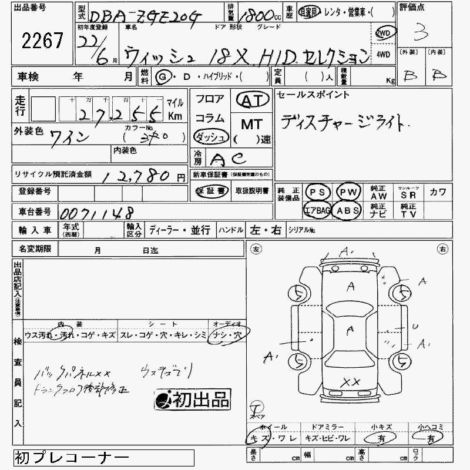 出品番号 2267
型式 DBA-ZGE20G 排気量 1800cc 車歴 自家用・レンタ・営業車・( ) 評価点 3
初年度登録 22/6月 車名 ドア 形状 グレード
ウィッシュ 1.8X HIDセレクション
2WD 4WD
外装 B 内装 B
車検 年 月 燃料 G・D・ハイブリッド・( ) 定員 ( )人 積載量 Kg
走行 十 万 千 百 十 27255 マイル Km
フロア コラム ダッシュ AT MT ( )速
セールスポイント
ディスチャージライト.
外装色 ワイン カラーNo.( 3R0 )
内装色
冷房 AC
リサイクル預託済金額 12,780円
新車保証書
保証書 取扱説明書
登録番号
車台番号 0071148
純正装備品 PS PW 純正AW サンルーフSR カワ
エアBAG ABS 純正ナビ 純正TV
輸入車 年式(西暦) 輸入区分 ディーラー・並行 ハンドル 左・右 シリアルNo.
名変期限 月 日迄
出品店記入
左 右
A A A A U A
5 5 5 5
XX
検査員記入
内装 シート オーディオ
ウス汚れ・汚れ・コゲ・キズ スレ・コゲ・穴・キレ・シミ ナシ・穴
バックパネルXX
トランクフロア修正
初出品
スペア
ホイール ドアミラー 小キズ 小ヘコミ
キズ・ワレ キズ・ヒビ・ワレ 有 有
初プレコーナー
長さ cm 幅 cm 高さ cm